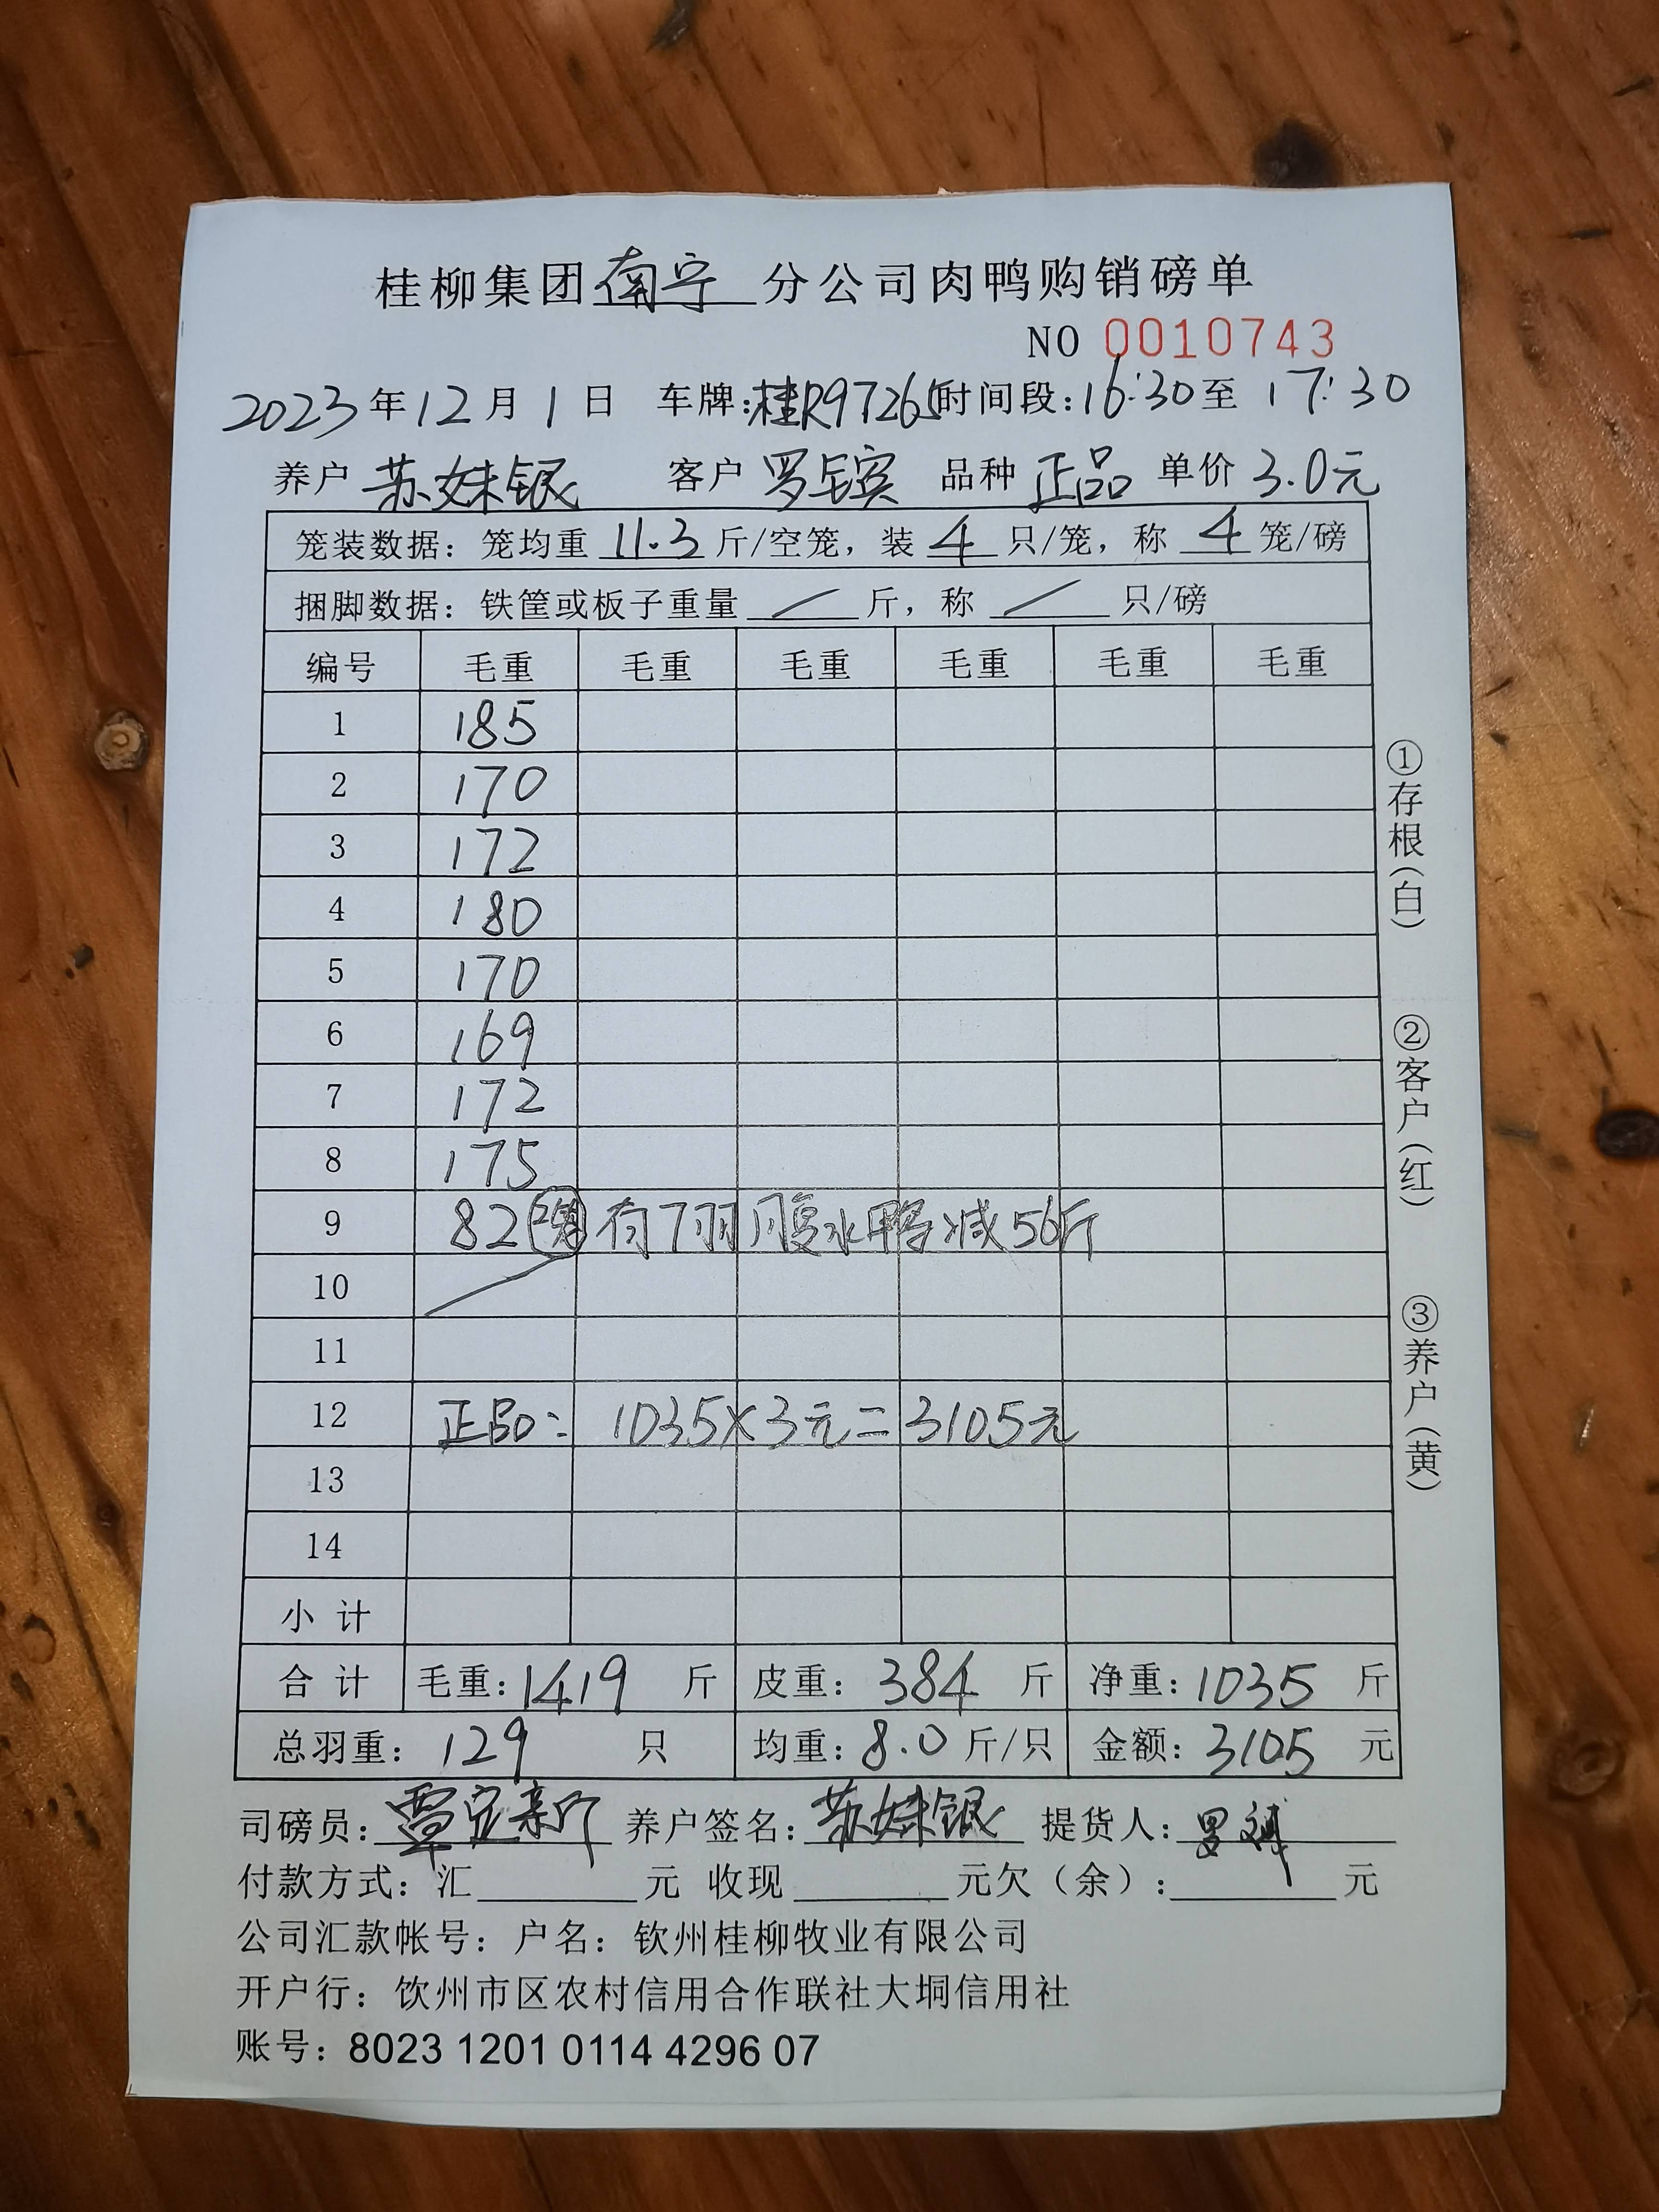 桂柳集团南宁分公司肉鸭购销磅单
NO 0010743
2023年12月1日 车牌:桂R97265时间段:16:30至17:30
养户 苏妹银 客户 罗 品种 正品 单价 3.0元
笼装数据：笼均重 11.3 斤/空笼，装 4 只/笼，称 4 笼/磅
捆脚数据：铁筐或板子重量 / 斤，称 / 只/磅
编号 毛重 毛重 毛重 毛重 毛重 毛重
1 185
2 170
3 172
4 180
5 170
6 169
7 172
8 175
9 82 有7羽腹水鸭减56斤
10
11
12 正品: 1035×3元=3105元
13
14
小计
合计 毛重:1419 斤 皮重: 384 斤 净重:1035 斤
总羽重: 129 只 均重:8.0 斤/只 金额:3105 元
司磅员:覃定新 养户签名:苏妹银 提货人:罗
付款方式：汇 元 收现 元欠（余）: 元
公司汇款帐号：户名：钦州桂柳牧业有限公司
开户行：饮州市区农村信用合作联社大垌信用社
账号：8023 1201 0114 4296 07
①存根（白）
②客户（红）
③养户（黄）